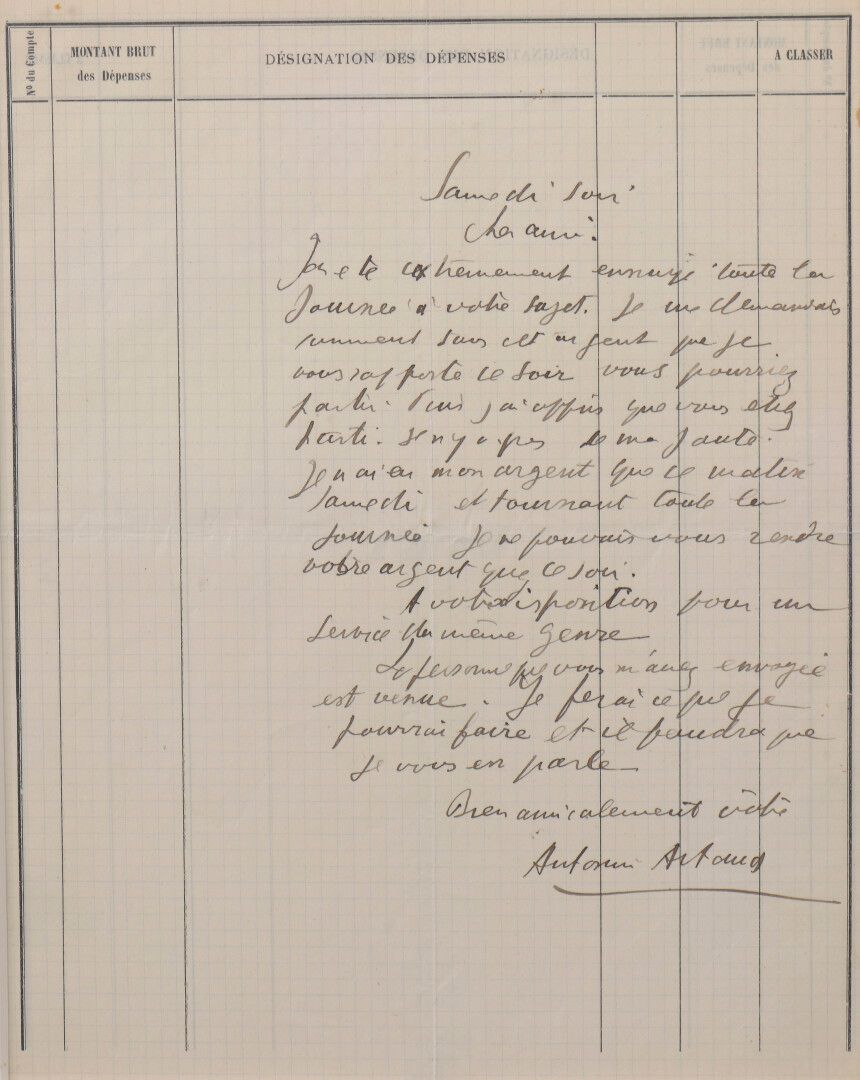 Nº du Compte
MONTANT BRUT
des Dépenses
DÉSIGNATION DES DÉPENSES
A CLASSER
Samedi soir
Cher ami.
J'ai été extrêmement ennuyé toute la
journée à votre sujet. Je me demandais
comment sans cet argent que je
vous rapporte ce soir vous pourriez
partir. Puis j'ai appris que vous étiez
parti. Il n'y a pas de ma faute.
Je n'ai eu mon argent que ce matin
samedi et tournant toute la
journée je ne pouvais vous rendre
votre argent que ce soir.
A votre disposition pour un
service du même genre
La personne que vous m'avez envoyée
est venue. Je ferai ce que je
pourrai faire et il faudra que
je vous en parle
Bien amicalement vôtre
Antonin Artaud